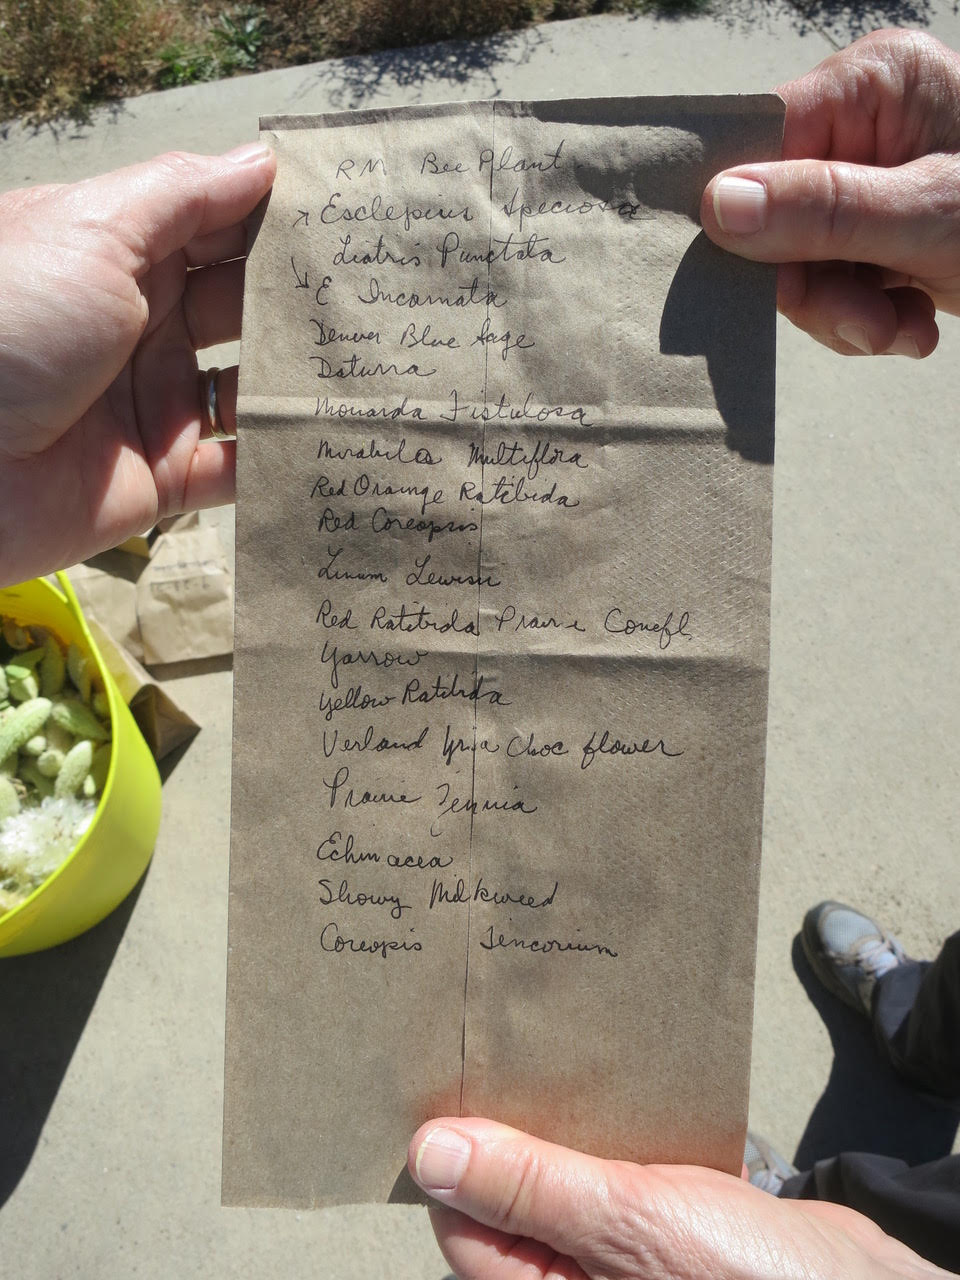 RM Bee Plant
Esclepius Speciosa
Liatris Punctata
E Incarnata
Denver Blue Sage
Daturra
Monarda Fistulosa
Mirabilas Multiflora
Red Orange Ratibida
Red Coreopsis
Linum Lewisii
Red Ratibida Prairie Conefl
Yarrow
Yellow Ratibida
Choc flower
Prairie Zennia
Echinacea
Showy Milkweed
Coreopsis Tencorium